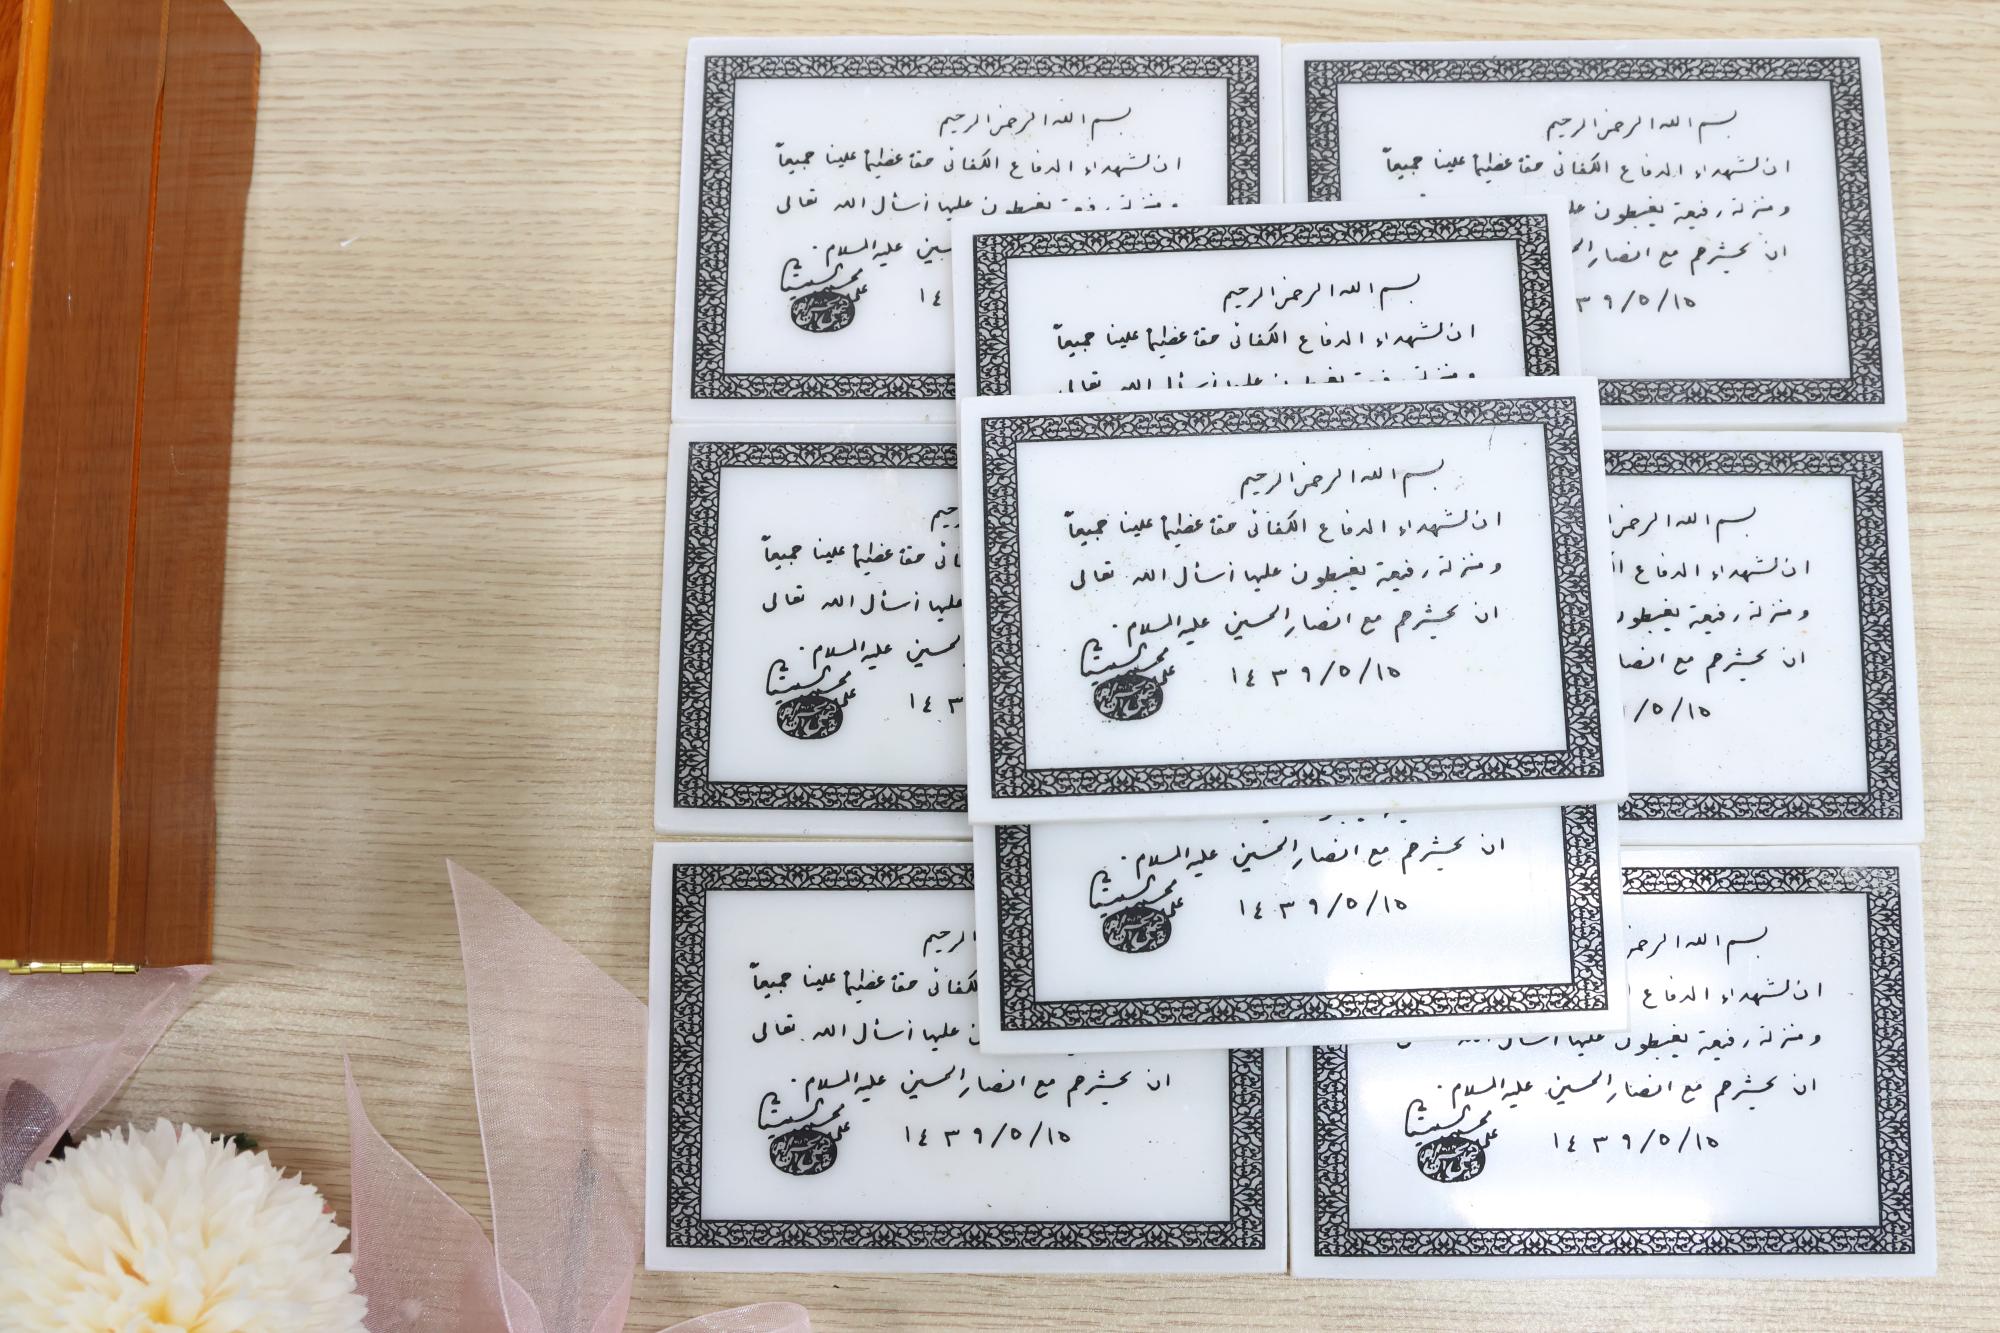 بسم الله الرحمن الرحيم
ان لشهداء الدفاع الكفائي حقاً عظيماً علينا جميعاً
ومنزلة رفيعة يغبطون عليها أسأل الله تعالى
ان يحشرهم مع انصار الحسين عليه السلام.
١٤٣٩/٥/١٥
علي الحسيني السيستاني